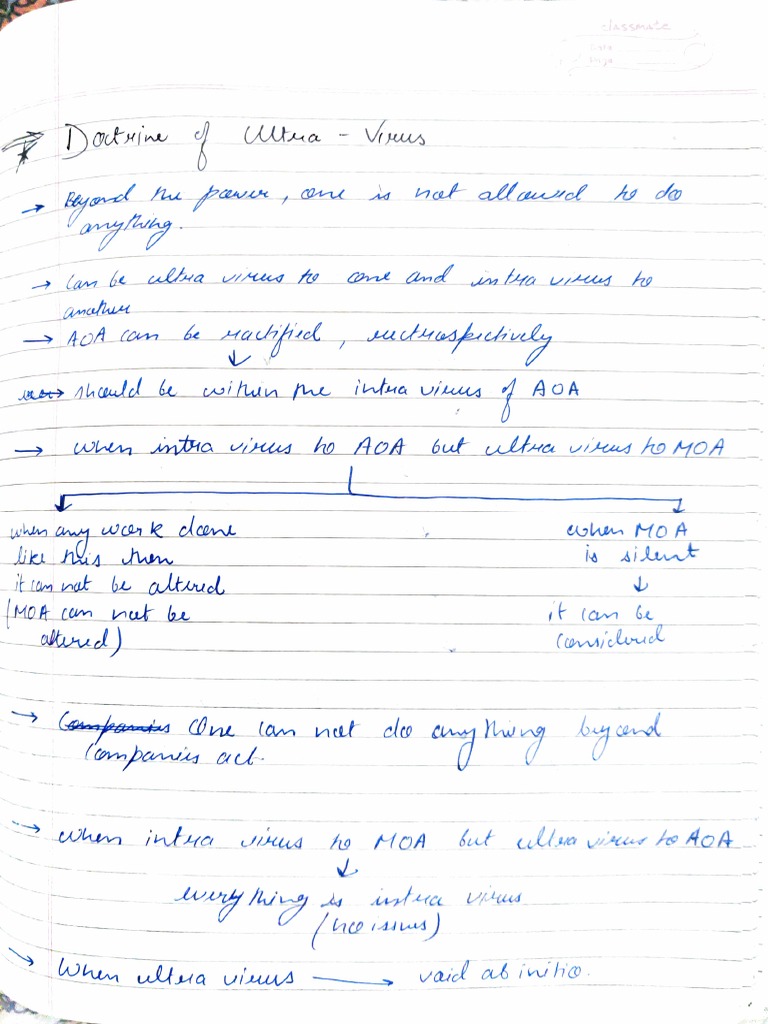 classmate
Date
Page
Doctrine of Ultra - Virus
→ Beyond the power, one is not allowed to do
anything.
→ Can be ultra virus to one and intra virus to
another
→ AOA can be ractified, rectrospectively
↓
→ should be within the intra virus of AOA
→ when intra virus to AOA but ultra virus to MOA
when any work done
like this then
it can not be altered
(MOA can not be
altered)
when MOA
is silent
↓
it can be
considered
→ Companies One can not do anything beyond
Companies act.
→ when intra virus to MOA but ultra virus to AOA
↓
everything is intra virus
(no issues)
→ When ultra virus → void ab initio.